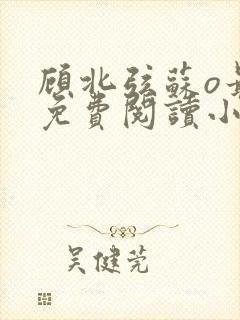 顾北弦蘇o
免費閱讀小
吴健莞